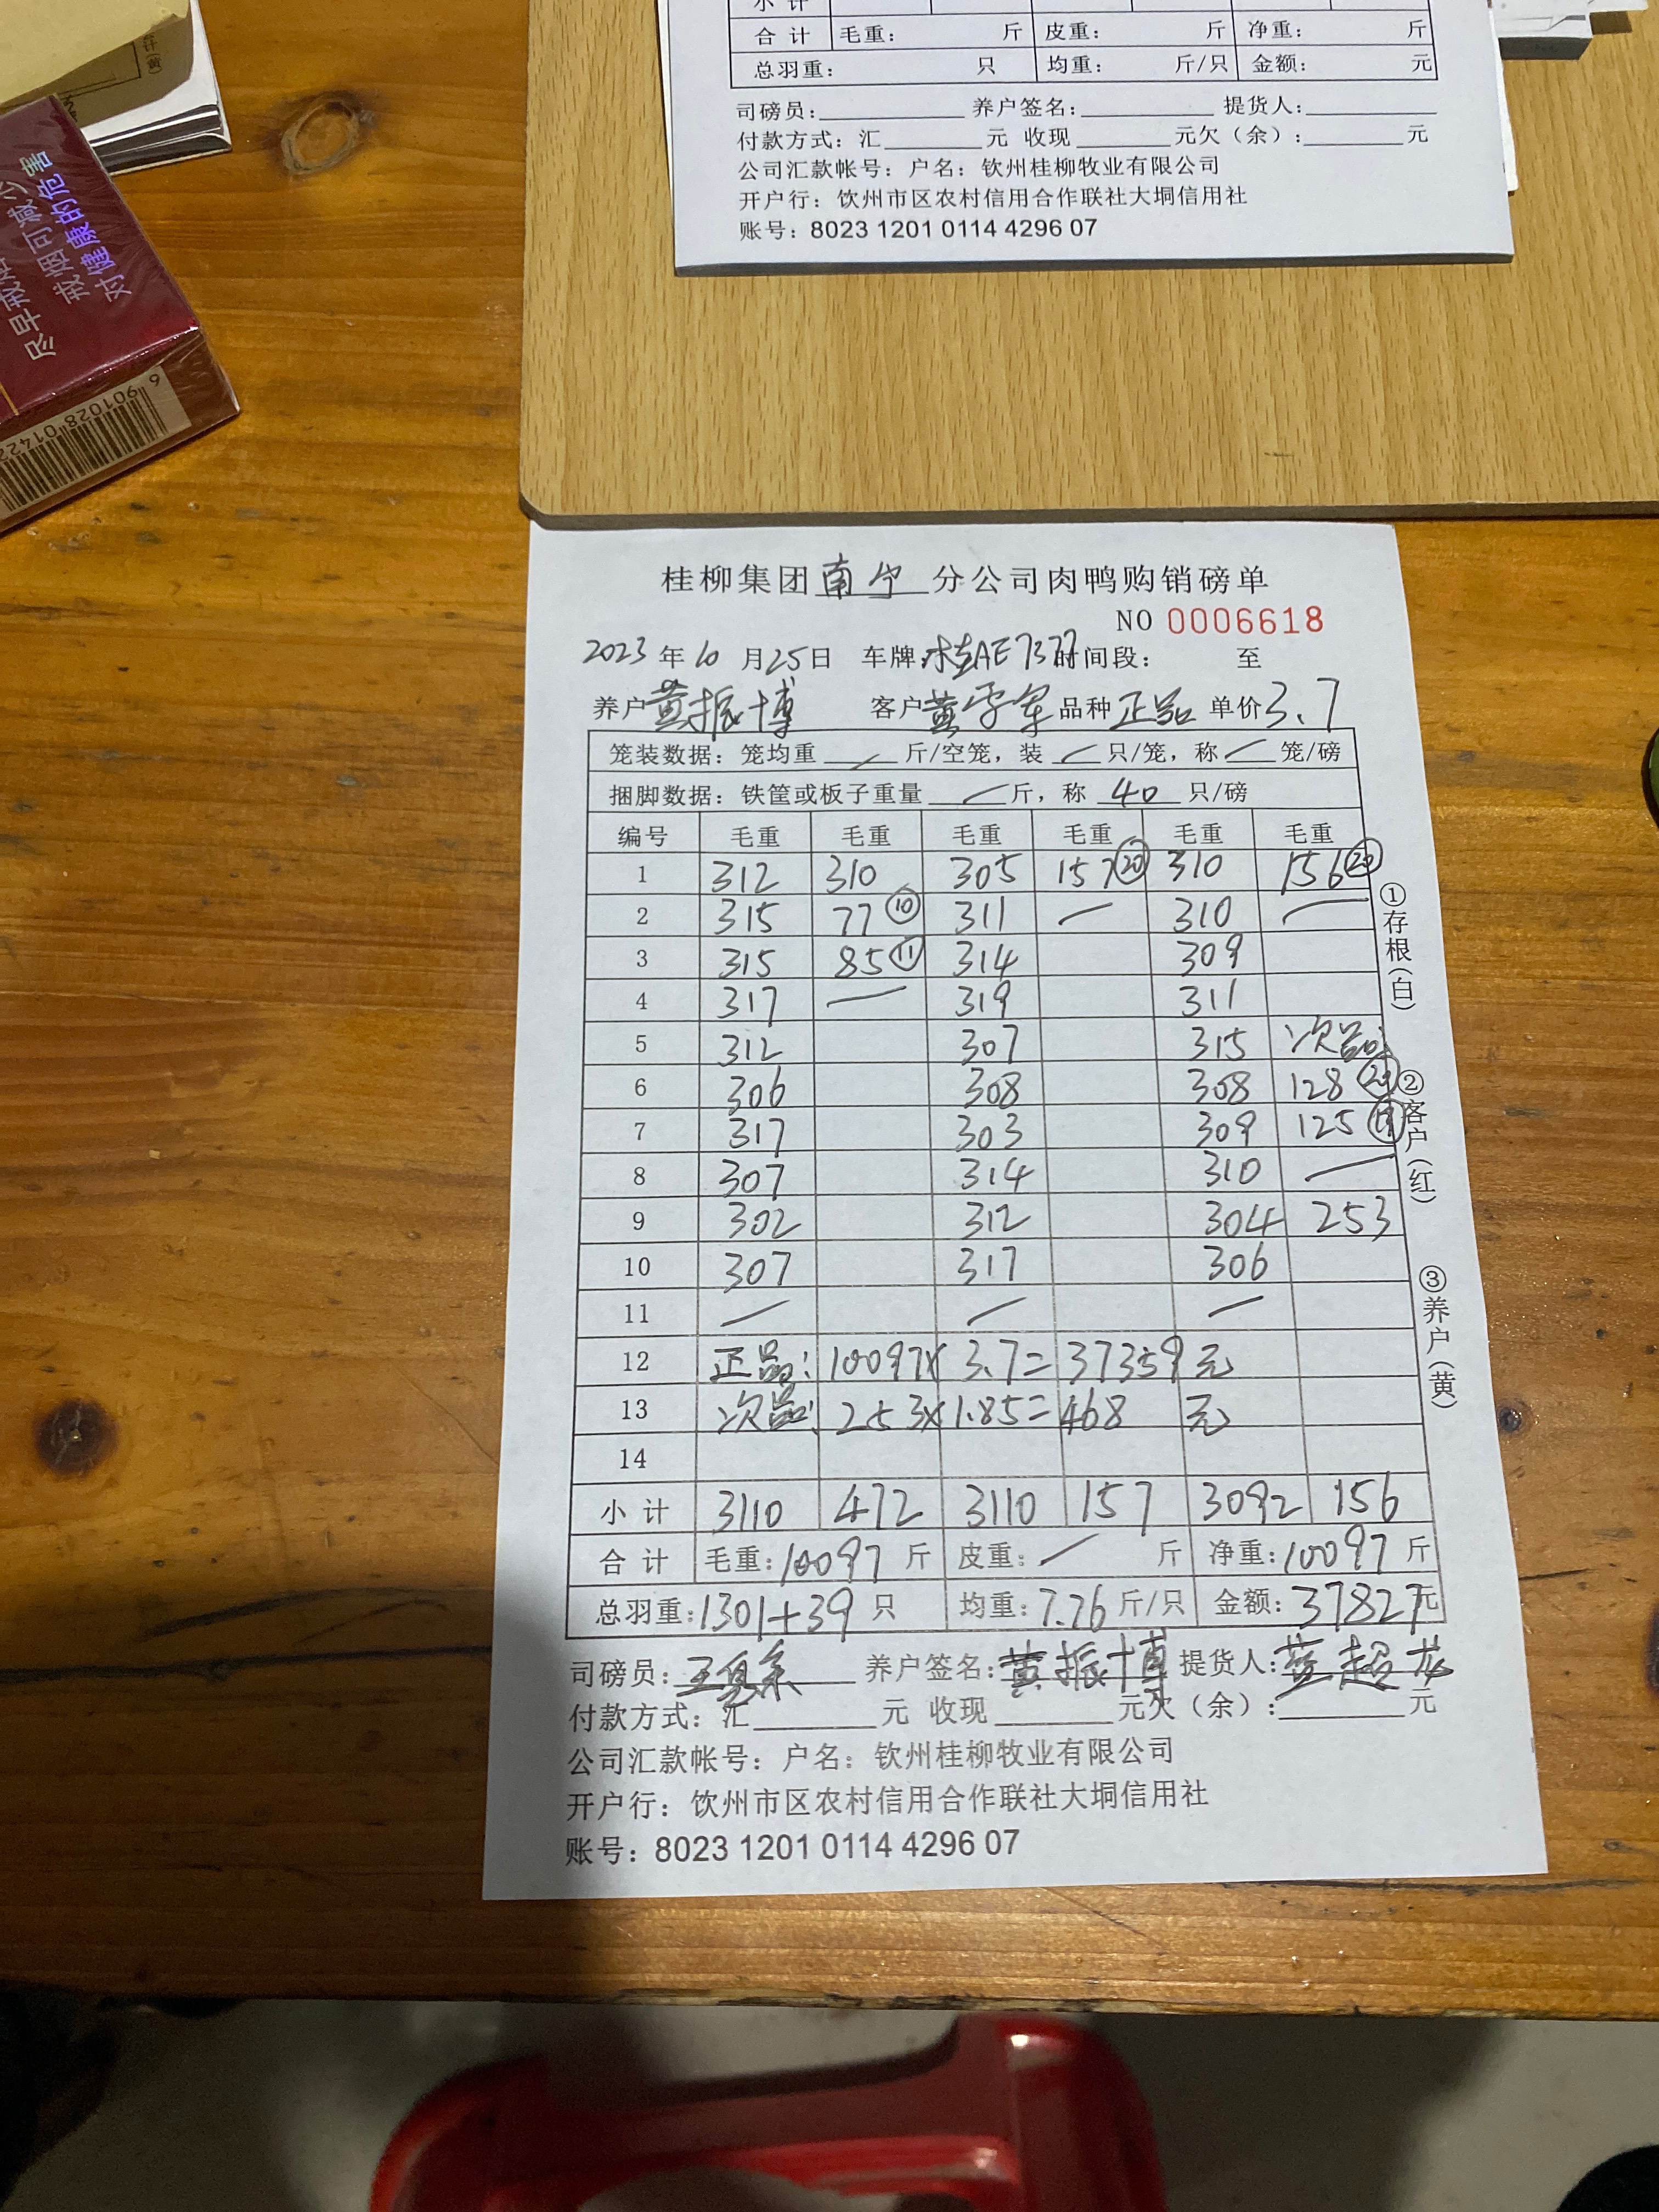 小 计
合 计 毛重： 斤 皮重： 斤 净重： 斤
总羽重： 只 均重： 斤/只 金额： 元
司磅员： 养户签名： 提货人：
付款方式：汇 元 收现 元欠（余）： 元
公司汇款帐号：户名：钦州桂柳牧业有限公司
开户行：饮州市区农村信用合作联社大垌信用社
账号：8023 1201 0114 4296 07
计（黄）
尽早戒烟
戒烟可减少
对健康的危害
6 901028 0142
桂柳集团南宁分公司肉鸭购销磅单
NO 0006618
2023年10月25日 车牌：桂AE7377时间段： 至
养户黄振博 客户黄学军 品种正品 单价3.7
笼装数据：笼均重 / 斤/空笼，装 / 只/笼，称 / 笼/磅
捆脚数据：铁筐或板子重量 / 斤，称 40 只/磅
编号 毛重 毛重 毛重 毛重 毛重 毛重
1 312 310 305 157⑳ 310 156⑳
2 315 77⑩ 311 — 310 —
3 315 85⑪ 314 309
4 317 — 319 311
5 312 307 315 次品:
6 306 308 308 128⑳
7 317 303 309 125⑲
8 307 314 310 —
9 302 312 304 253
10 307 317 306
11 — — —
12 正品：10097×3.7=37359元
13 次品：253×1.85=468元
14
小 计 3110 472 3110 157 3092 156
合 计 毛重：10097 斤 皮重：/ 斤 净重：10097 斤
总羽重：1301+39 只 均重：7.76 斤/只 金额：37827元
①存根（白）
②客户（红）
③养户（黄）
司磅员： 养户签名：黄振博 提货人：蓝超龙
付款方式：汇 元 收现 元欠（余）： 元
公司汇款帐号：户名：钦州桂柳牧业有限公司
开户行：饮州市区农村信用合作联社大垌信用社
账号：8023 1201 0114 4296 07